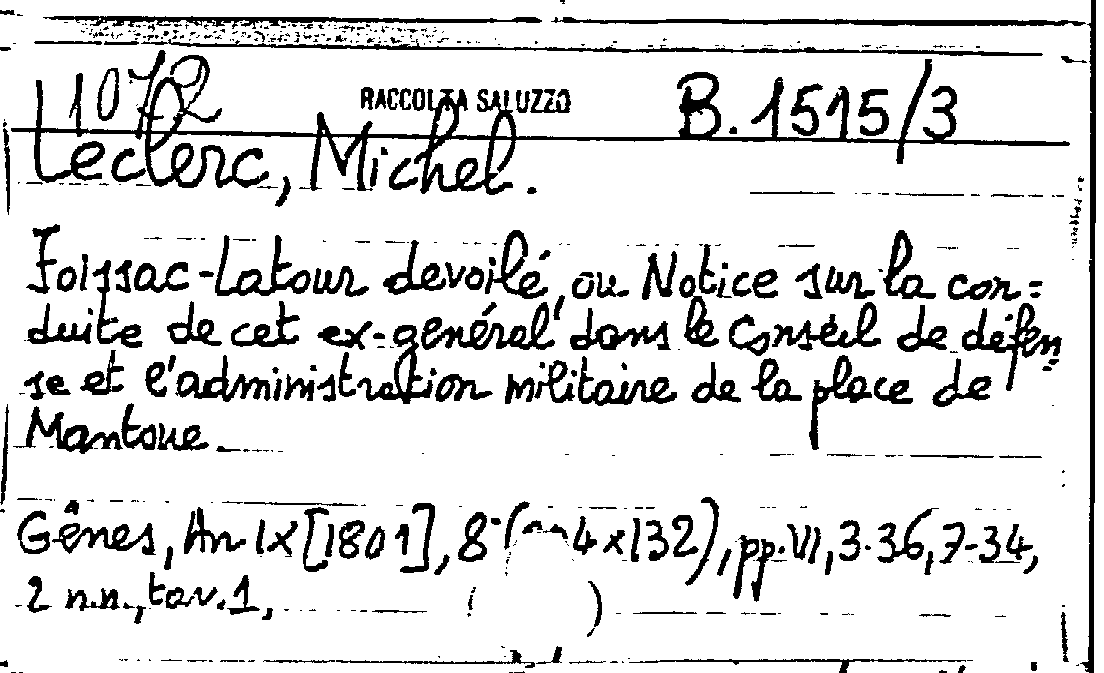 1072 RACCOLTA SALUZZO B. 1515/3
Leclerc, Michel.
Foissac-Latour devoilé, ou Notice sur la con=
duite de cet ex-général dans le Conseil de défen=
se et l'administration militaire de la place de
Mantoue.
Gênes, An IX [1801], 8° ( 4x132), pp. VI, 3-36, 7-34,
2 n.n., tav. 1,